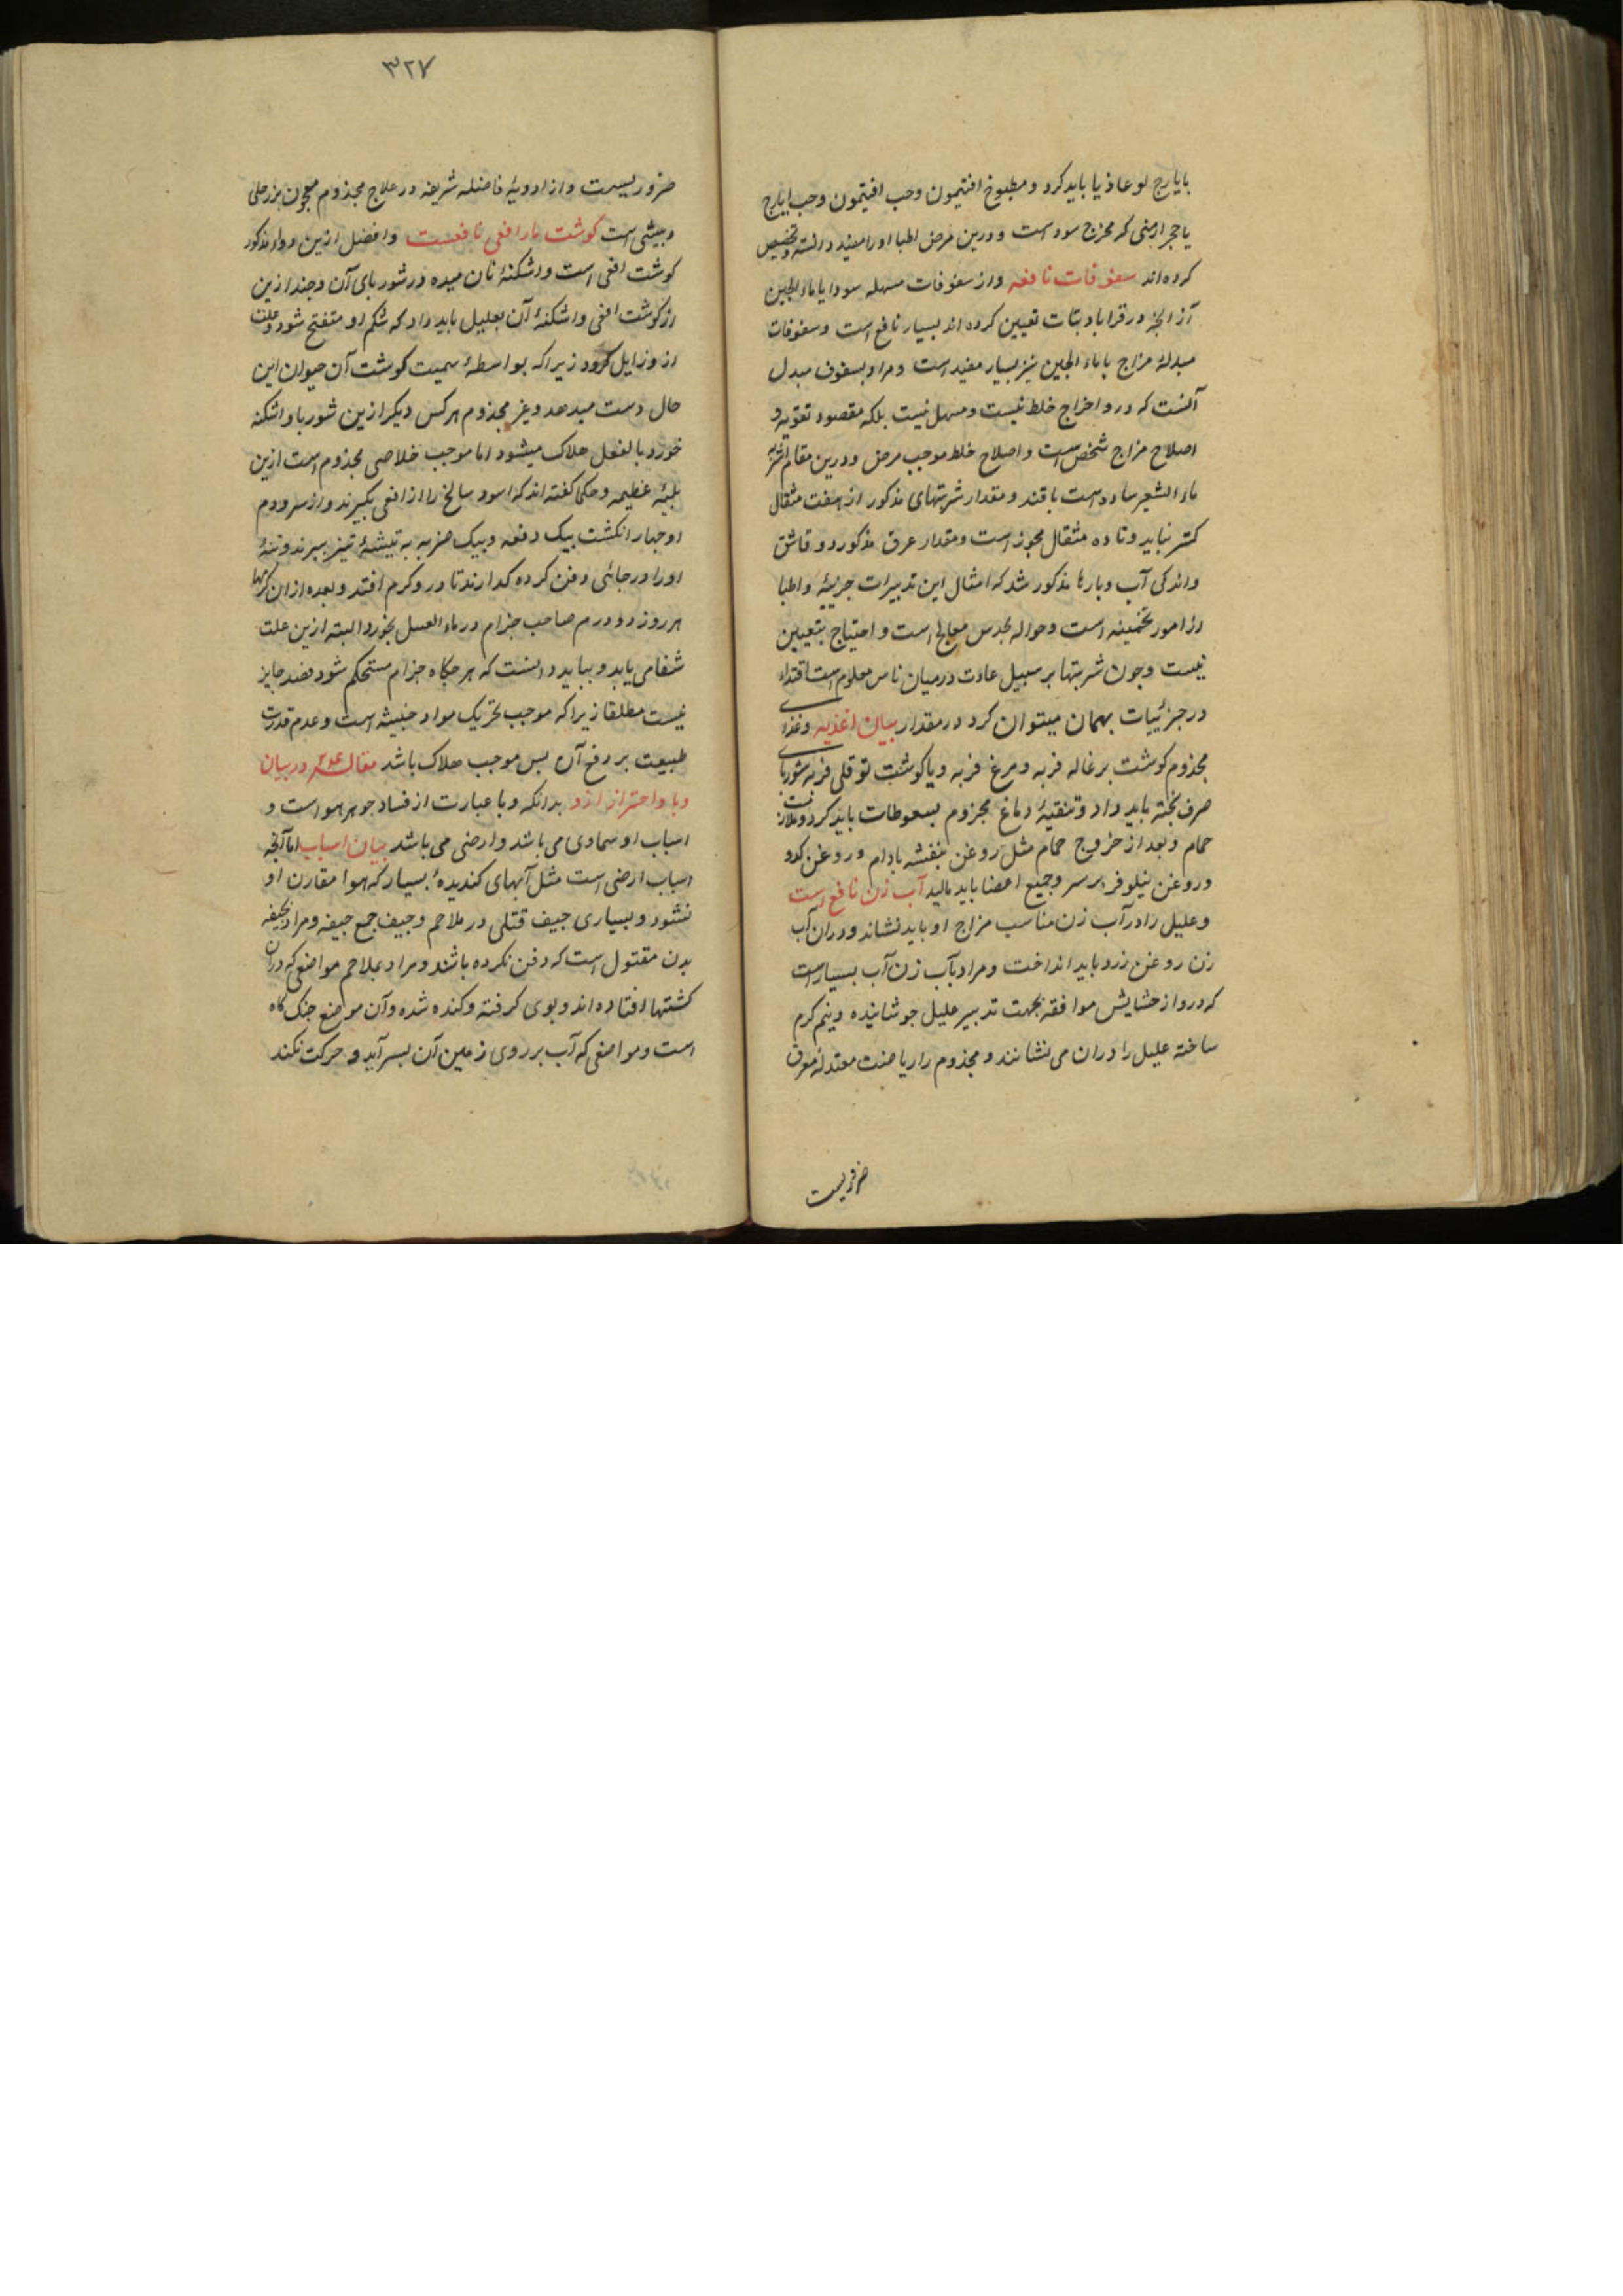 بایارج لوغاذیا باید کرد و مطبوخ افتیمون وحب افتیمون وحب ایارج
یا حجر ارمنی که مخرج سوداست ودرین مرض اطبا اورا مفید دانسته وتخصیص
کرده اند سفوفات نافعه واز سفوفات مسهله سودا یا ماء الجبن
آز آنچه در قرابادینات تعیین کرده اند بسیار نافع است وسفوفات
مبدلهٔ مزاج باماء الجبن نیز بسیار مفید است ومراد بسفوف مبدل
آنست که درو اخراج خلط نیست ومسهل نیست بلکه مقصود تقویه و
اصلاح مزاج شخص است واصلاح خلط موجب مرض ودرین مقام اشربه
ماء الشعیر ساده است باقند ومقدار شربتهای مذکور از هفت مثقال
کمتر نباید وتا ده مثقال مجوز است ومقدار عرق مذکور دو قاشق
واندکی آب وبارها مذکور شد که امثال این تدبیرات جزییهٔ واطبا
از امور تخمینه است وحواله بحدس معالج است واحتیاج بتعیین
نیست وچون شربتها بر سبیل عادت درمیان ناس معلوم است اقتداء
در جزئیات بهمان میتوان کرد در مقدار بیان اغذیه وغذاء
مجذوم کوشت برغاله فربه ومرغ فربه ویا کوشت توقلی فربه شوربای
صرف پخته باید داد وتنقیهٔ دماغ مجزوم بسعوطات باید کرد وملازمت
حمام وبعد از خروج حمام مثل روغن بنفشه بادام وروغن کدو
وروغن نیلوفر برسر وجمیع اعضا باید مالید آب زن نافع است
وعلیل را در آب زن مناسب مزاج او باید نشاند ودران آب
زن روغن زرد باید انداخت ومراد بآب زن آب بسیار است
که درو از حشایش موافقه بجهت تدبیر علیل جوشانیده ونیم کرم
ساخته علیل را دران می نشانند ومجذوم را ریاضت معتدلهٔ معرق
ضروریست
۳۲۷
ضروریست واز ادویهٔ فاضله شریفه در علاج مجذوم معجون بزرجلی
وبیشی است کوشت مار افعی نافعست وافضل ازین دواء مذکور
کوشت افعی است واشکنهٔ نان میده در شوربای آن وچند ازین
از کوشت افعی واشکنهٔ آن بعلیل باید داد که شکم او متفتح شود وعلت
ازو زایل کردد زیراکه بواسطهٔ سمیت کوشت آن حیوان این
حال دست میدهد وغیر مجذوم هر کس دیکر ازین شوربا واشکنه
خورد بالفعل هلاک میشود اما موجب خلاصی مجذوم است ازین
بلیهٔ عظیمه وحکما کفته اند که اسود سالخ را از افعی بکیرند واز سر ودم
او چهار انکشت بیک دفعه وبیک ضربه به تیشهٔ تیز ببرند وتنهٔ
اورا در جائی دفن کرده کدارند تا درو کرم افتد وبعده ازان کرمها
هر روز دو درم صاحب جزام در ماء العسل بخورد البته ازین علت
شفا می یابد وبباید دانست که هرچکاه جزام مستحکم شود فصد جایز
نیست مطلقا زیراکه موجب تحریک مواد خبیثه است وعدم قدرت
طبیعت بر دفع آن پس موجب هلاک باشد مقاله در بیان
وبا واحتراز ازو بدانکه وبا عبارت از فساد جوهر هواست و
اسباب او سماوی می باشد وارضی می باشد بیان اسباب اما آنچه
اسباب ارضی است مثل آبهای کندیدهٔ بسیار که هوا مقارن او
نشود وبسیاری جیف قتلی در ملاحم وجیف جمع جیفه ومراد بجیفه
بدن مقتول است که دفن نکرده باشند ومراد بملاحم مواضعی که دران
کشتها افتاده اند وبوی کرفته وکنده شده وآن موضع جنک کاه
است ومواضعی که آب بر روی زمین آن بسر آید و حرکت نکند